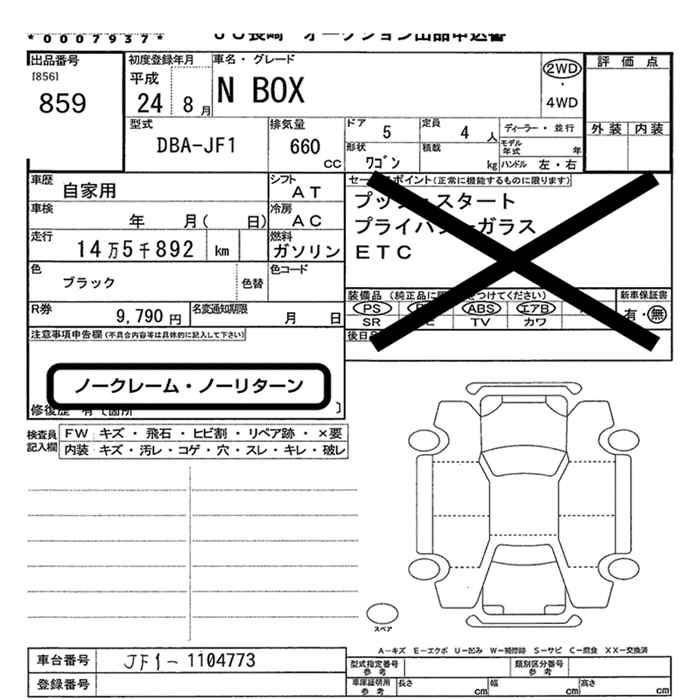 *0007937*
JU長崎 オークション出品申込書
出品番号
[856]
859
初度登録年月
平成
24 8 月
車名・グレード
N BOX
2WD
・
4WD
評価点
外装 内装
型式
DBA-JF1
排気量
660
CC
ドア
5
定員
4 人
ディーラー・並行
形状
ワゴン
積載
kg
モデル
年式 年
ハンドル 左・右
車歴
自家用
シフト
AT
車検
年 月( 日)
冷房
AC
走行
14万5千892 km
燃料
ガソリン
色
ブラック
色替
色コード
R券
9,790 円
名変通知期限
月 日
セールスポイント(正常に機能するものに限ります)
プッシュスタート
プライバシーガラス
ETC
装備品 (純正品に をつけてください)
新車保証書
PS ABS エアB
SR TV カワ
有・無
後日
注意事項申告欄(不具合内容等は具体的に記入して下さい)
ノークレーム・ノーリターン
修復歴 有 [箇所 ]
検査員
記入欄
FW キズ・飛石・ヒビ割・リペア跡・×要
内装 キズ・汚レ・コゲ・穴・スレ・キレ・破レ
スペア
A-キズ E-エクボ U-凹み W-補修跡 S-サビ C-腐食 XX-交換済
車台番号
JF1-1104773
登録番号
型式指定番号
参考
類別区分番号
参考
車庫証明用
参考
長さ cm
幅 cm
高さ cm